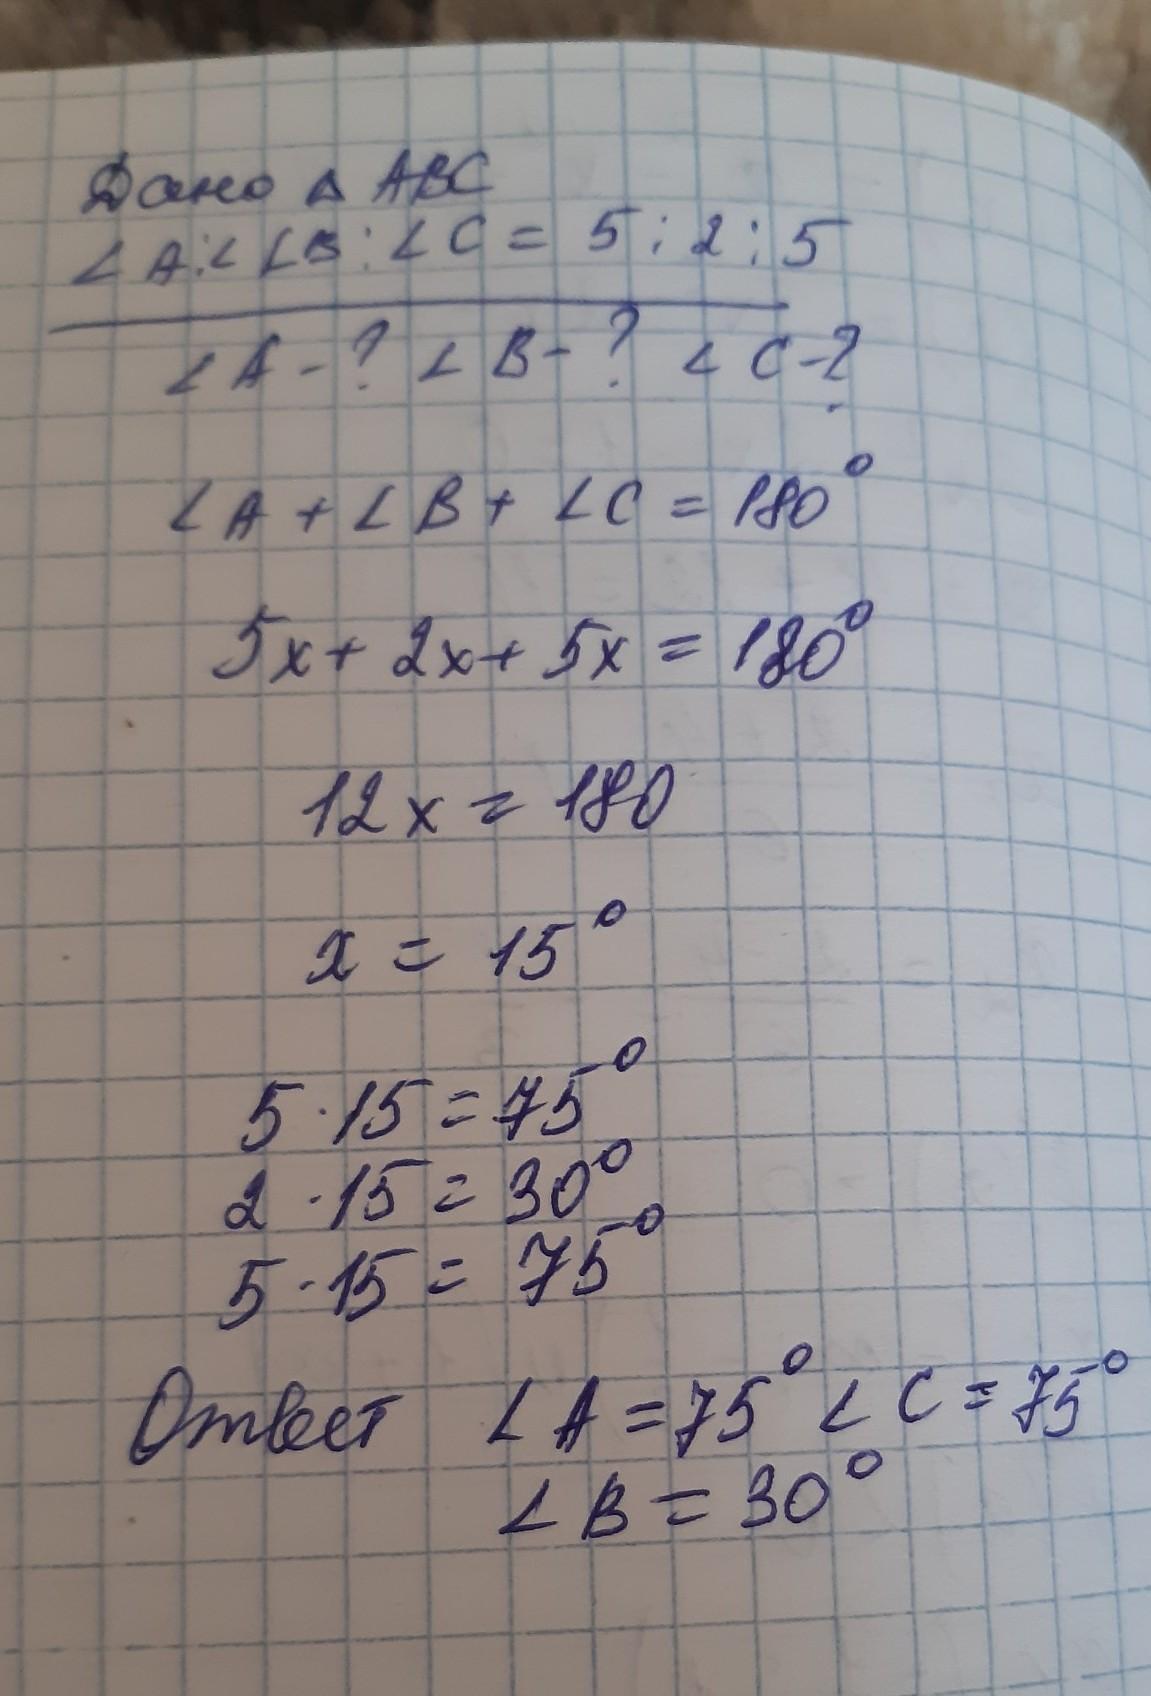 Дано △ ABC
∠A:∠ ∠B:∠C = 5:2:5
∠A-? ∠B-? ∠C-?
∠A + ∠B + ∠C = 180°
5x + 2x + 5x = 180°
12x = 180
x = 15°
5·15 = 75°
2·15 = 30°
5·15 = 75°
Ответ ∠A = 75° ∠C = 75°
∠B = 30°